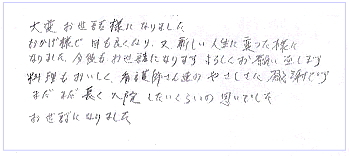 大変お世話様になりました
おかげ様で目も良くなり、又新しい人生に変った様に
なりました。今後もお世話になりますよろしくお願い致します
料理もおいしく、看護師さん達のやさしさに感謝です
まだまだ長く入院したいくらいの思いでした
お世話になりました